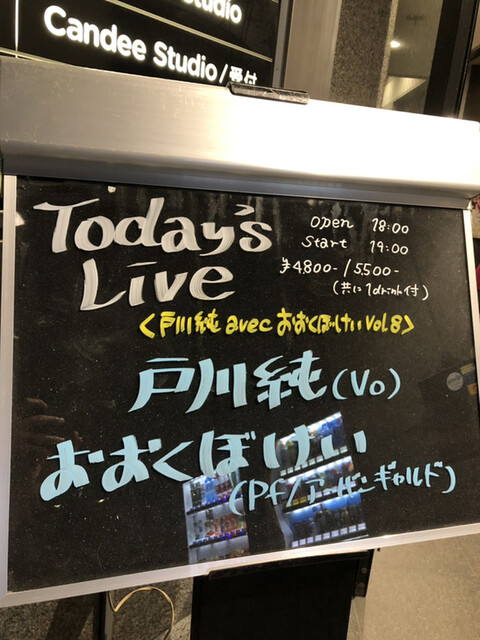 Studio
Candee Studio/受付
Today's
Live
open 18:00
Start 19:00
¥4800-/5500-
(共に1drink付)
<戸川純 avec おおくぼけい Vol.8>
戸川純(Vo)
おおくぼけい
(Pf/アーバンギャルド)